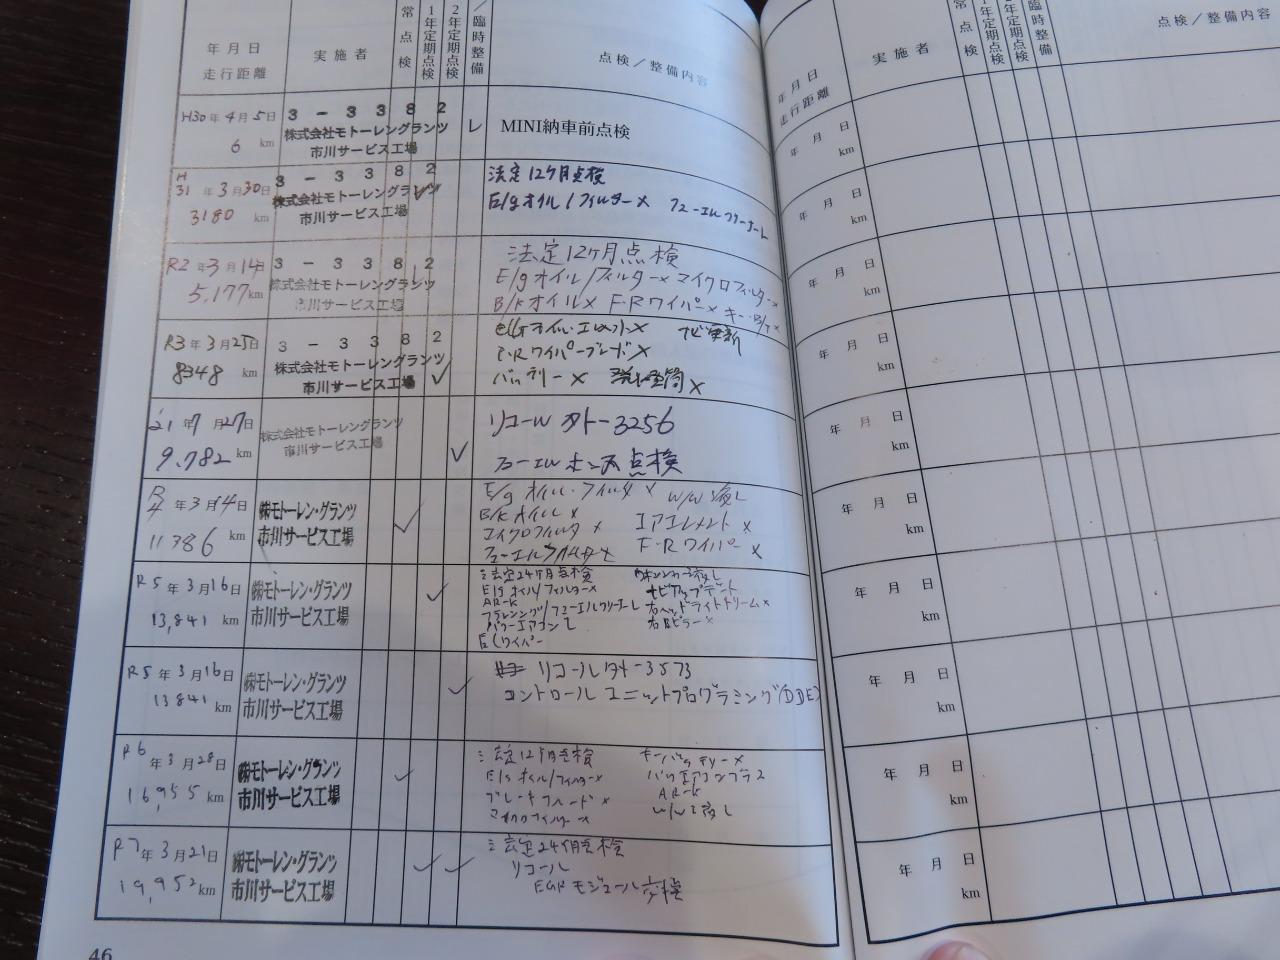 年月日
走行距離
実施者
常点検
1年定期点検
2年定期点検
臨時整備
点検/整備内容
H30年4月5日
6 km
3-3382
株式会社モトーレングランツ
市川サービス工場
レ
MINI納車前点検
H
31年3月30日
3180 km
3-3382
株式会社モトーレングランツ
市川サービス工場
法定12ケ月点検
E/gオイル/フィルターx フューエルクリーナーL
R2年3月14日
5,177km
3-3382
株式会社モトーレングランツ
市川サービス工場
法定12ケ月点検
E/gオイル/フィルターx マイクロフィルターx
B/kオイルx F・Rワイパーx キー
R3年3月25日
8348 km
3-3382
株式会社モトーレングランツ
市川サービス工場
ナビ更新
F・Rワイパーブレードx
バッテリーx
'21年7月27日
9,782km
株式会社モトーレングランツ
市川サービス工場
リコール 外-3256
フューエルポンプ点検
R4年3月14日
11386 km
㈱モトーレン・グランツ
市川サービス工場
E/gオイル・フィルタx W/W液L
B/kオイルx エアエレメントx
マイクロフィルタx F・Rワイパーx
フューエルフィルターx
R5年3月16日
13,841km
㈱モトーレン・グランツ
市川サービス工場
法定24ケ月点検
E/gオイル/フィルターx ナビアップデート
AR-K 右ヘッドライトトリームx
フラッシング/フューエルクリーナーL 右Bピラーx
パワーエアコンL
R5年3月16日
13841 km
㈱モトーレン・グランツ
市川サービス工場
リコール外-3573
コントロールユニットプログラミング(DDE)
R6年3月28日
16,955km
㈱モトーレン・グランツ
市川サービス工場
法定12ケ月点検 キーバッテリーx
E/gオイル/フィルターx パワーエアコンプラス
ブレーキフルードx AR-K
マイクロフィルターx W/W液L
R7年3月21日
19,952km
㈱モトーレン・グランツ
市川サービス工場
法定24ケ月点検
リコール
EGRモジュール交換
46
年月日
走行距離
実施者
常点検
1年定期点検
2年定期点検
臨時整備
点検/整備内容
年月日
km
年月日
km
年月日
km
年月日
km
年月日
km
年月日
km
年月日
km
年月日
km
年月日
km
年月日
km